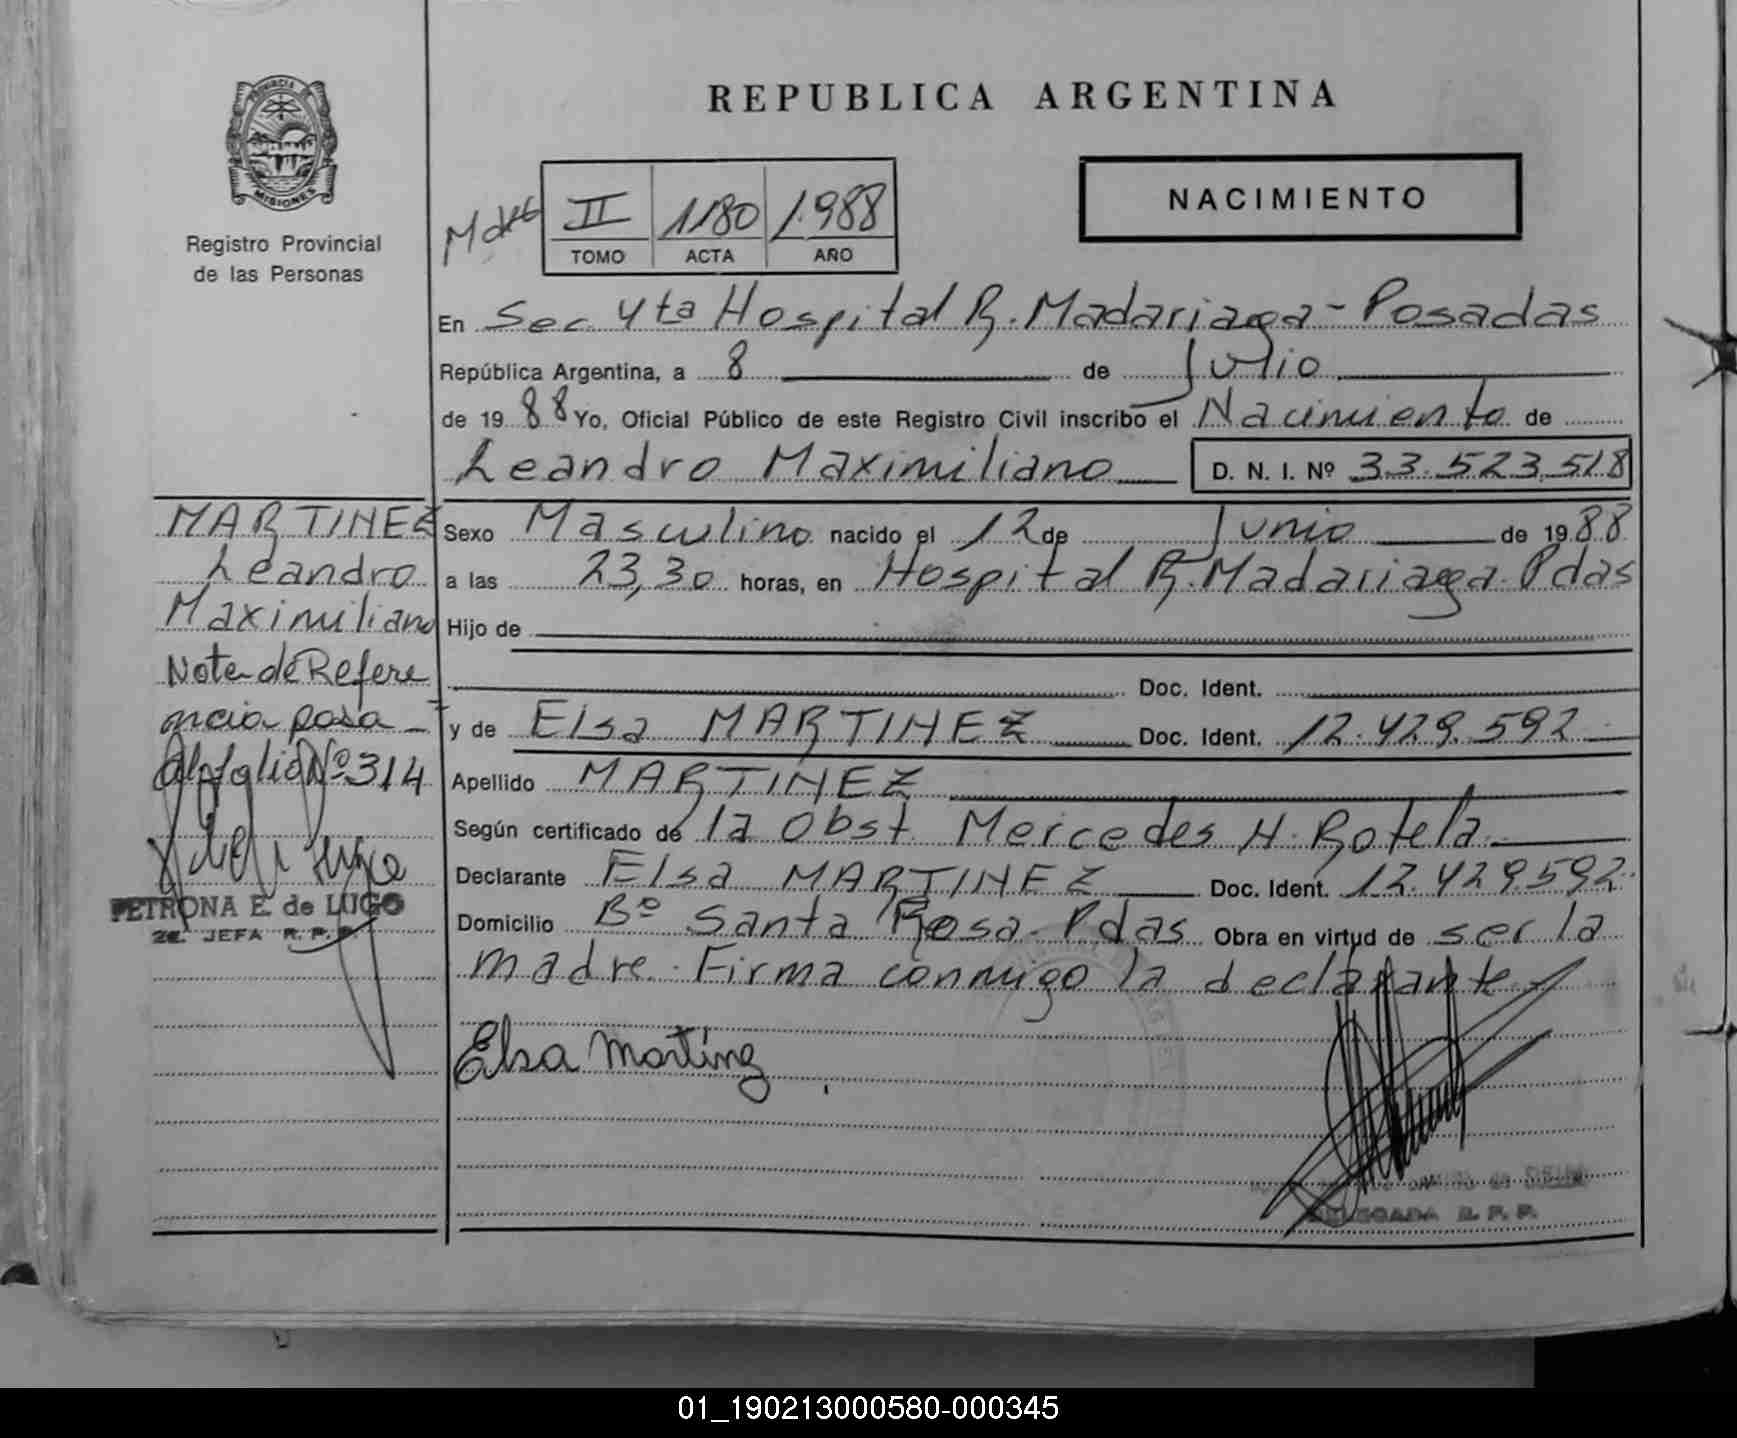 REPUBLICA ARGENTINA
PROVINCIA DE
MISIONES
Registro Provincial
de las Personas
II 1180 1.988
TOMO ACTA AÑO
NACIMIENTO
En Sec 4ta Hospital R. Madariaga - Posadas
República Argentina, a 8 de Julio
de 19 88 Yo, Oficial Público de este Registro Civil inscribo el Nacimiento de
Leandro Maximiliano D. N. I. Nº 33.523.518
Sexo Masculino nacido el 12 de Junio de 19 88
a las 23,30 horas, en Hospital R. Madariaga Pdas
Hijo de
Doc. Ident.
y de Elsa MARTINEZ Doc. Ident. 12.429.592
Apellido MARTINEZ
Según certificado de la Obst. Mercedes H. Rotela
Declarante Elsa MARTINEZ Doc. Ident. 12.429.592
Domicilio Bº Santa Rosa Pdas Obra en virtud de ser la
madre. Firma conmigo la declarante
Elsa Martinez
DELEGADA R. P. P.
MARTINEZ
Leandro
Maximiliano
Nota de Refere
ncia pasa
al folio Nº 314
PETRONA E. de LUGO
2a. JEFA R. P. P.
01_190213000580-000345